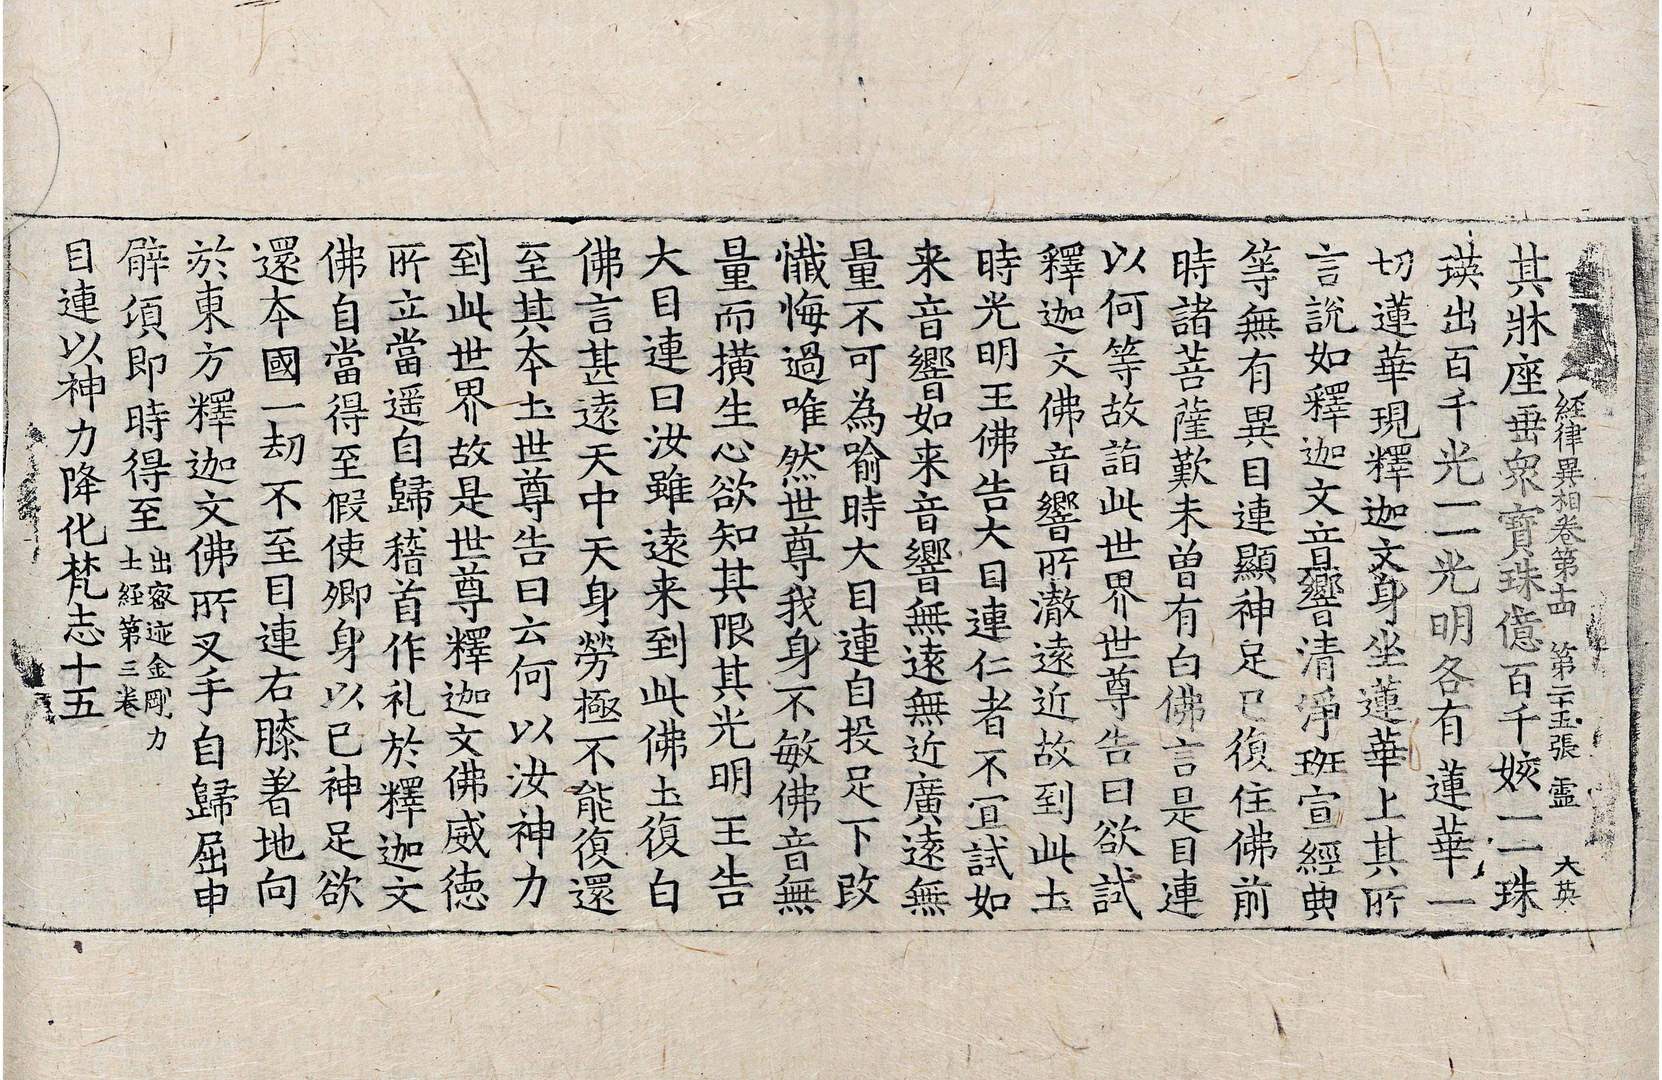 経律異相卷第十四　第二十五張　靈　大英
其牀座垂衆寶珠億百千姟一一珠
瑛出百千光一一光明各有蓮華一
切蓮華現釋迦文身坐蓮華上其所
言說如釋迦文音響清淨班宣經典
等無有異目連顯神足已復住佛前
時諸菩薩歎未曾有白佛言是目連
以何等故詣此世界世尊告曰欲試
釋迦文佛音響所澈遠近故到此土
時光明王佛告大目連仁者不宜試如
来音響如来音響無遠無近廣遠無
量不可為喻時大目連自投足下改
懺悔過唯然世尊我身不敏佛音無
量而橫生心欲知其限其光明王告
大目連曰汝雖遠来到此佛土復白
佛言甚遠天中天身勞極不能復還
至其本土世尊告曰云何以汝神力
到此世界故是世尊釋迦文佛威徳
所立當遥自歸稽首作礼於釋迦文
佛自當得至假使卿身以已神足欲
還本國一劫不至目連右膝著地向
於東方釋迦文佛所叉手自歸屈申
臂頃即時得至出密迹金剛力士經第三卷
目連以神力降化梵志十五